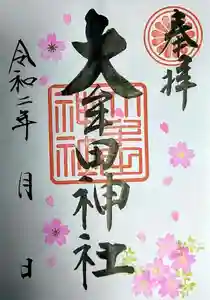 奉拝
大牟田神社
令和二年 月 日